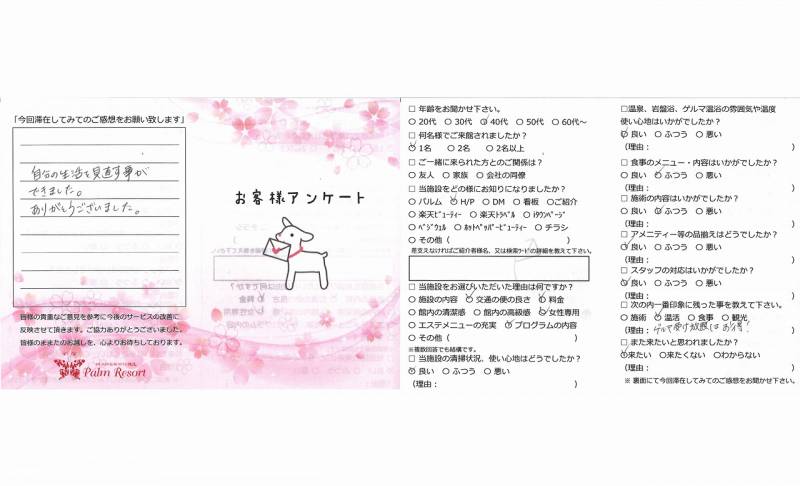 「今回滞在してみてのご感想をお願い致します」
自分の生活を見直す事が
できました。
ありがとうございました。
皆様の貴重なご意見を参考に今後のサービスの改善に
反映させて頂きます。ご協力ありがとうございました。
皆様のまたのお越しを、心よりお待ちしております。
Palm Resort
お客様アンケート
□ 年齢をお聞かせ下さい。
○ 20代 ○ 30代 ○ 40代 ○ 50代 ○ 60代～
□ 何名様でご来館されましたか?
○ 1名 ○ 2名 ○ 2名以上
□ ご一緒に来られた方とのご関係は?
○ 友人 ○ 家族 ○ 会社の同僚
□ 当施設をどの様にお知りになりましたか?
○ パルム ○ H/P ○ DM ○ 看板 ○ご紹介
○ 楽天ビューティー ○ 楽天トラベル ○ iタウンページ
○ ベジウェル ○ ホットペッパービューティー ○ チラシ
○ その他 ( )
差支えなければご紹介者様名、又は検索ワードの詳細を教えて下さい。
□ 当施設をお選びいただいた理由は何ですか?
○ 施設の内容 ○ 交通の便の良さ ○ 料金
○ 館内の清潔感 ○ 館内の高級感 ○ 女性専用
○ エステメニューの充実 ○ プログラムの内容
○ その他 ( )
※複数回答でも結構です。
□ 当施設の清掃状況、使い心地はどうでしたか?
○ 良い ○ ふつう ○ 悪い
(理由: )
□温泉、岩盤浴、ゲルマ温浴の雰囲気や温度
使い心地はいかがでしたか?
○ 良い ○ ふつう ○ 悪い
(理由: )
□ 食事のメニュー・内容はいかがでしたか?
○ 良い ○ ふつう ○ 悪い
(理由: )
□ 施術の内容はいかがでしたか?
○ 良い ○ ふつう ○ 悪い
□ アメニティー等の品揃えはどうでしたか?
○ 良い ○ ふつう ○ 悪い
(理由: )
□ スタッフの対応はいかがでしたか?
○ 良い ○ ふつう ○ 悪い
(理由: )
□ 次の内一番印象に残った事を教えて下さい。
○ 施術 ○ 温活 ○ 食事 ○ 観光
(理由: ゲルマ受け放題はお得! )
□ また来たいと思われましたか?
○来たい ○来たくない ○わからない
(理由: )
※ 裏面にて今回滞在してみてのご感想をお聞かせ下さい。